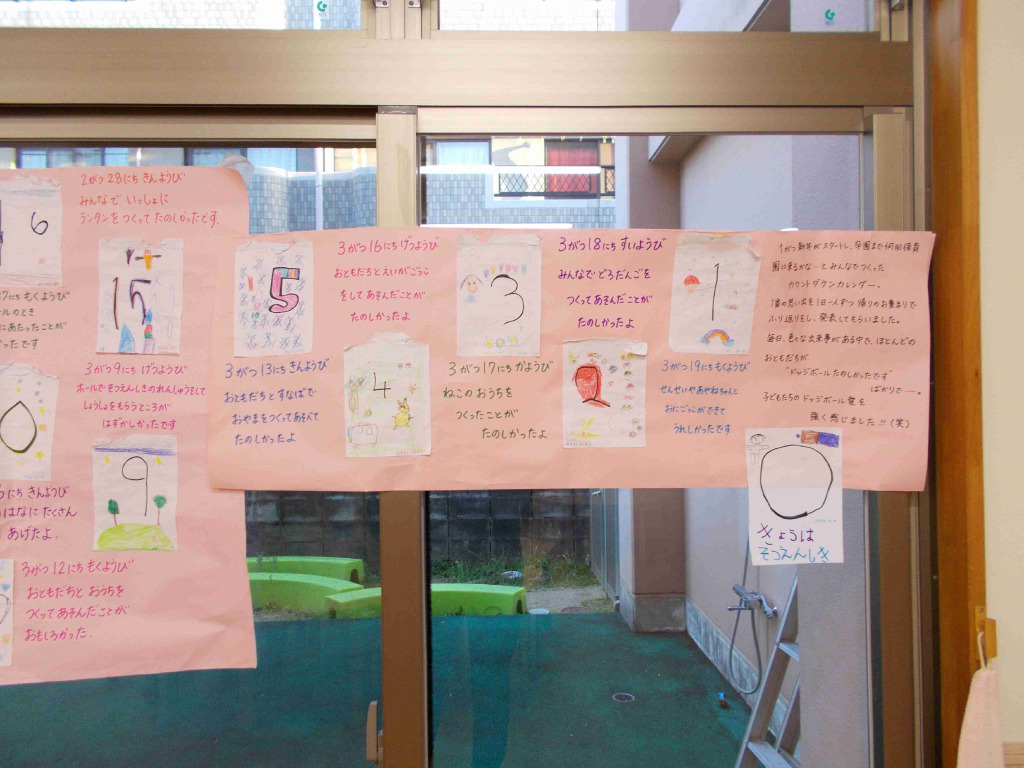 6
2がつ28にち きんようび
みんなで いっしょに
ランタンを つくって たのしかったです.
15
もくようび
のとき
にあたったことが
3がつ9にち げつようび
ホールで そつえんしきの れんしゅうをして
しょうしょをもらうところが
はずかしかったです
0
きんようび
はなに たくさん
あげたよ.
9
3がつ12にち もくようび
おともだちと おうちを
つくって あそんだことが
おもしろかった.
5
3がつ13にち きんようび
おともだちと すなばで
おやまを つくって あそべて
たのしかったよ
3がつ16にち げつようび
おともだちと えいがごっこ
をして あそんだことが
たのしかったよ
4
3
3がつ17にち かようび
ねこの おうちを
つくったことが
たのしかったよ
3がつ18にち すいようび
みんなで どろだんごを
つくって あそんだことが
たのしかったよ
1
3がつ19にち もくようび
せんせいや あやねちゃんと
おにごっこができて
うれしかったです
1がつ新年がスタートし、卒園まで何回保育
園に来るかな…と みんなでつくった
カウントダウンカレンダー。
1番の思い出を 1日一人ずつ 帰りのお集まりで
ふり返りをし、発表してもらいました。
毎日、色々な出来事がある中で、ほとんどの
おともだちが
"ドッジボール たのしかったです"
ばかりで…。
子どもたちの ドッジボール 愛を
強く 感じました!!(笑)
0
きょうは
そつえんしき